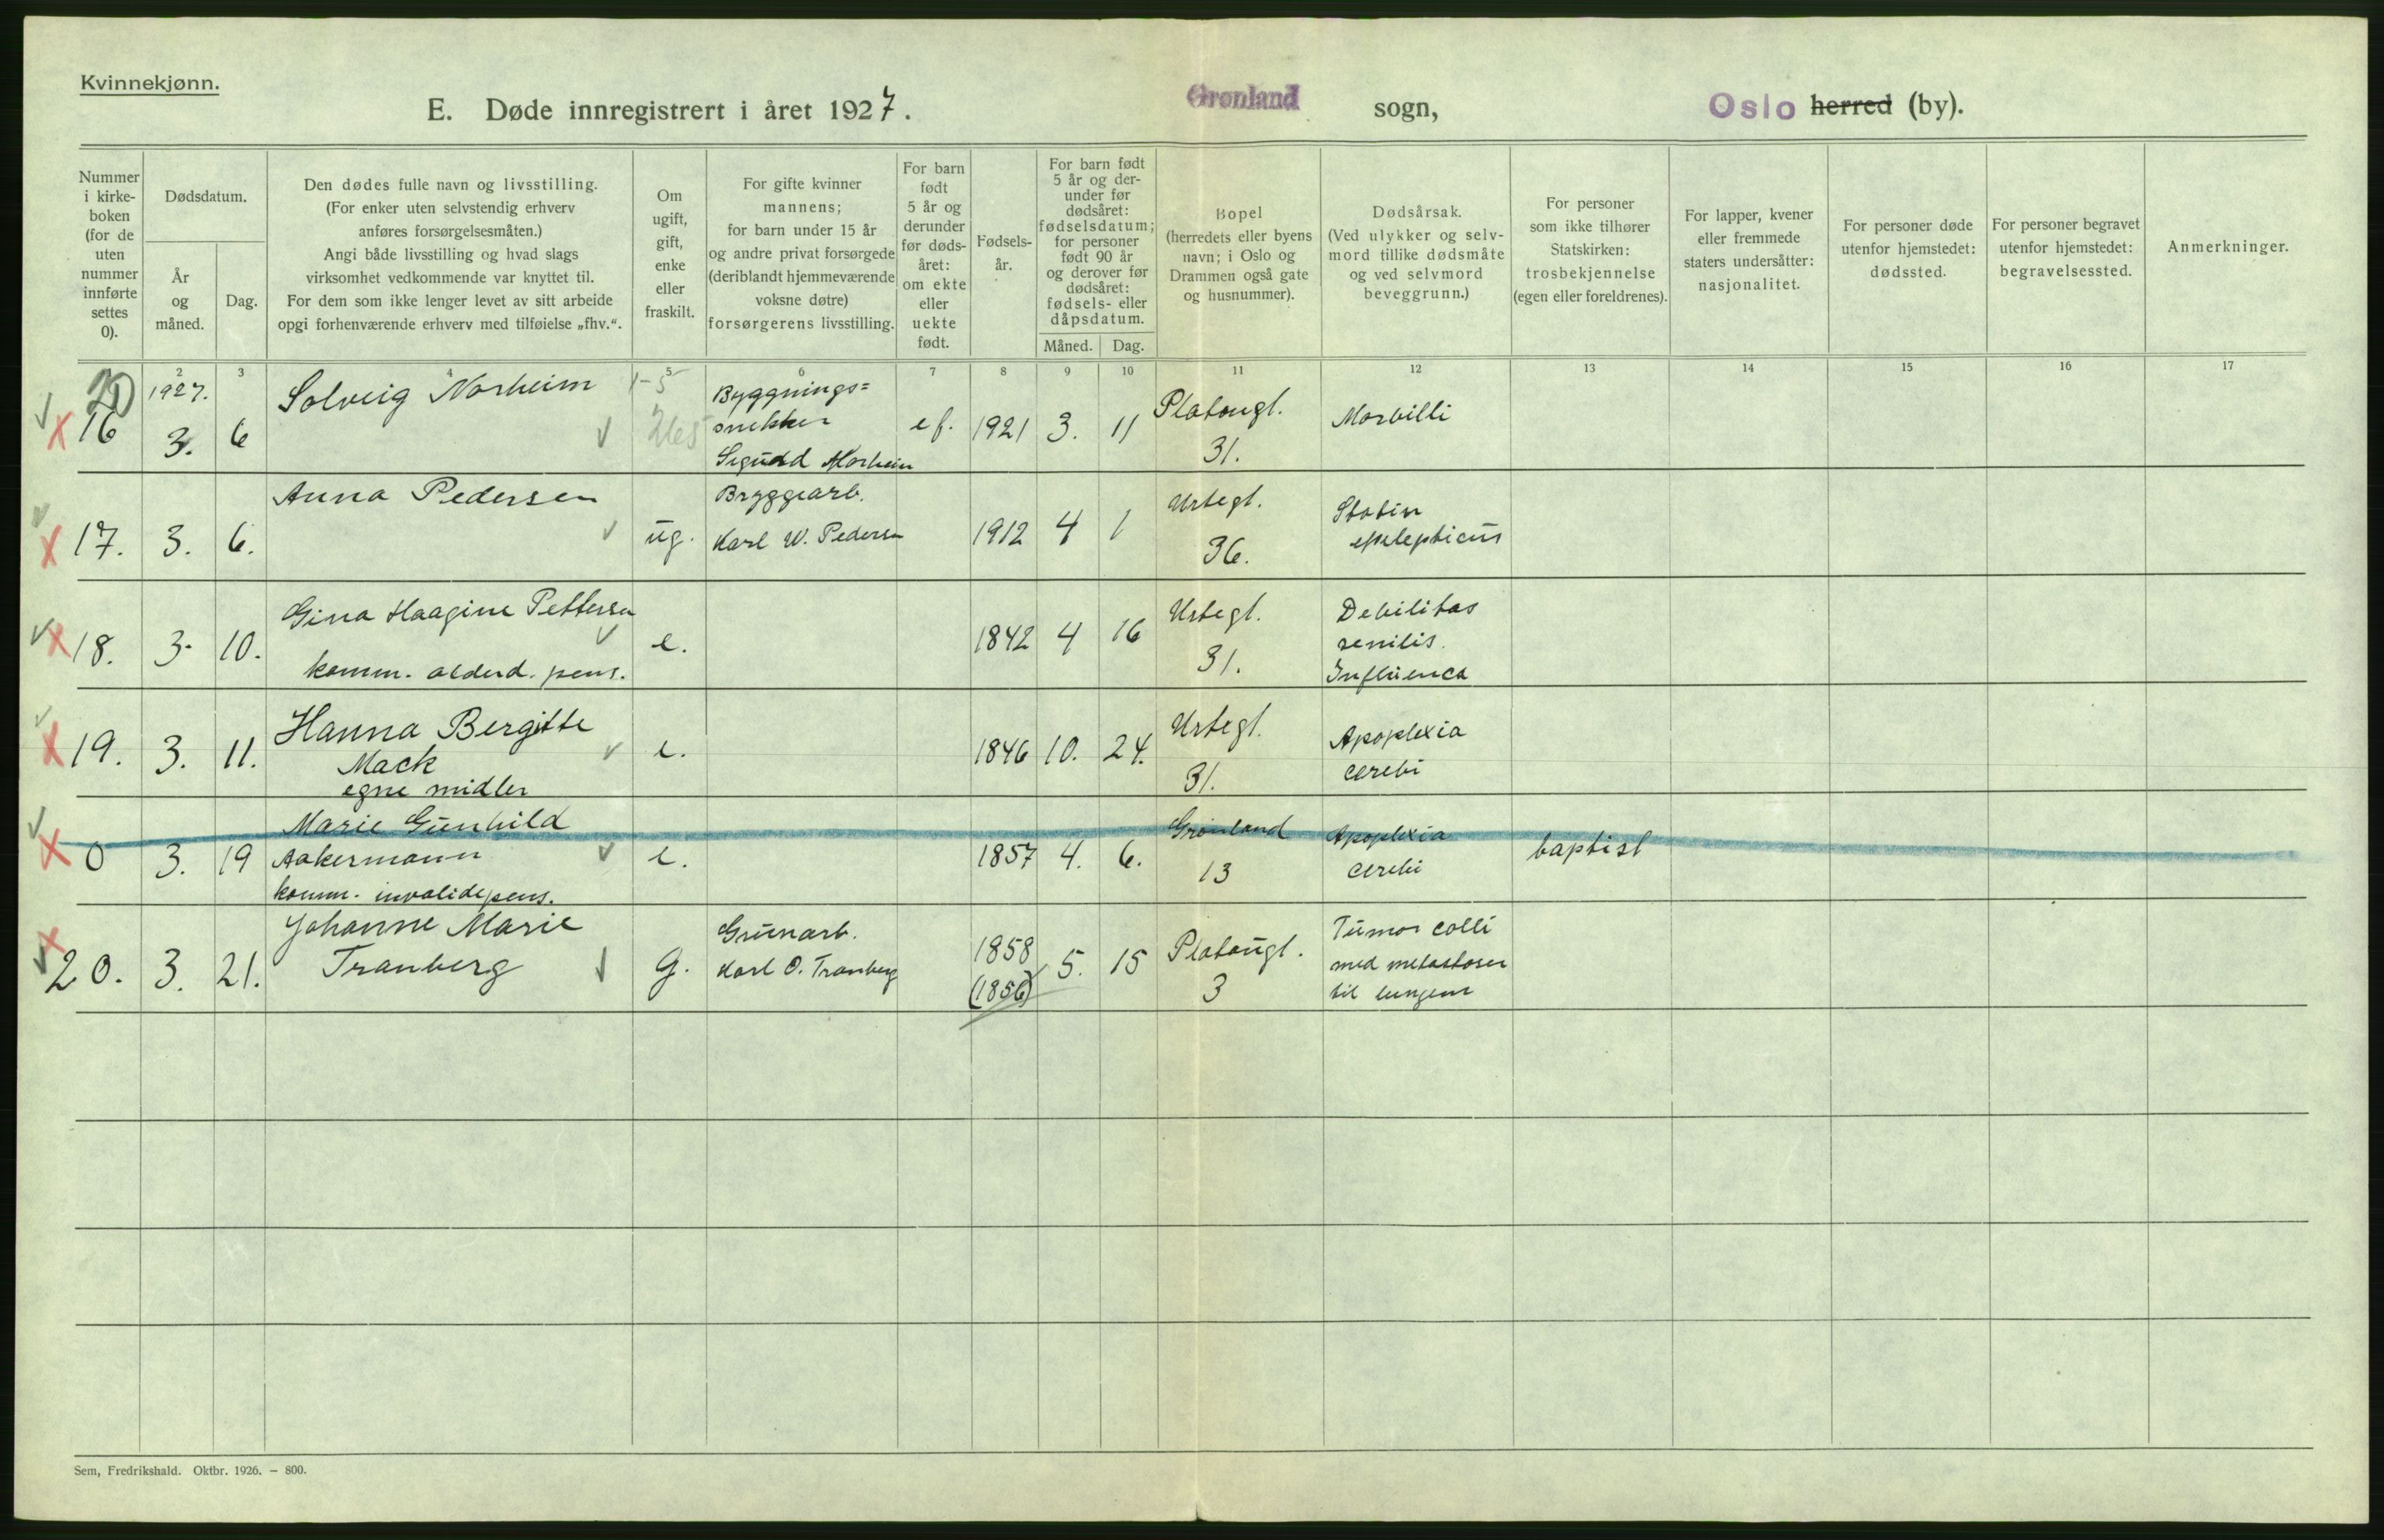 Kvinnekjønn.
E. Døde innregistrert i året 1927. Grønland sogn, Oslo herred (by).
Nummer i kirke-boken (for de uten nummer innførte settes 0).
Dødsdatum.
År og måned.
Dag.
Den dødes fulle navn og livsstilling.
(For enker uten selvstendig erhverv
anføres forsørgelsesmåten.)
Angi både livsstilling og hvad slags
virksomhet vedkommende var knyttet til.
For dem som ikke lenger levet av sitt arbeide
opgi forhenværende erhverv med tilføielse „fhv.“.
Om ugift, gift, enke eller fraskilt.
For gifte kvinner
mannens;
for barn under 15 år
og andre privat forsørgede
(deriblandt hjemmeværende
voksne døtre)
forsørgerens livsstilling.
For barn født 5 år og derunder før døds-året: om ekte eller uekte født.
Fødsels-år.
For barn født
5 år og der-
under før
dødsåret:
fødselsdatum;
for personer
født 90 år
og derover før
dødsåret:
fødsels- eller
dåpsdatum.
Måned. Dag.
Bopel
(herredets eller byens
navn; i Oslo og
Drammen også gate
og husnummer).
Dødsårsak.
(Ved ulykker og selv-
mord tillike dødsmåte
og ved selvmord
beveggrunn.)
For personer
som ikke tilhører
Statskirken:
trosbekjennelse
(egen eller foreldrenes).
For lapper, kvener
eller fremmede
staters undersåtter:
nasjonalitet.
For personer døde
utenfor hjemstedet:
dødssted.
For personer begravet
utenfor hjemstedet:
begravelsessted.
Anmerkninger.
2 3 4 5 6 7 8 9 10 11 12 13 14 15 16 17
20
16 1927. 3. 6 Solveig Norheim 1-5 Byggnings=
snekker
Sigurd Norheim ef. 1921 3. 11 Platougt.
31. Morbilli
17. 3. 6. Anna Pedersen ug. Bryggearb.
Karl W. Pedersen 1912 4 1 Urtegt.
36. Statin
epilepticus
18. 3. 10. Gina Haagine Pettersen
komm. alderd. pens. e. 1842 4 16 Urtegt.
31. Debilitas
senilis.
Influenca
19. 3. 11. Hanna Bergitte
Mack
egne midler e. 1846 10. 24. Urtegt.
31. Apoplexia
cerebi
0 3. 19 Marie Gunhild
Aakermann
komm. invalidepens. e. 1857 4. 6. Grønland
13 Apoplexia
cerebi baptist
20. 3. 21. Johanne Marie
Tranberg g. Grunarb.
Karl O. Tranberg 1858
(1856) 5. 15 Platougt.
3 Tumor colli
med metastaser
til lungene
Sem, Fredrikshald. Oktbr. 1926. – 800.